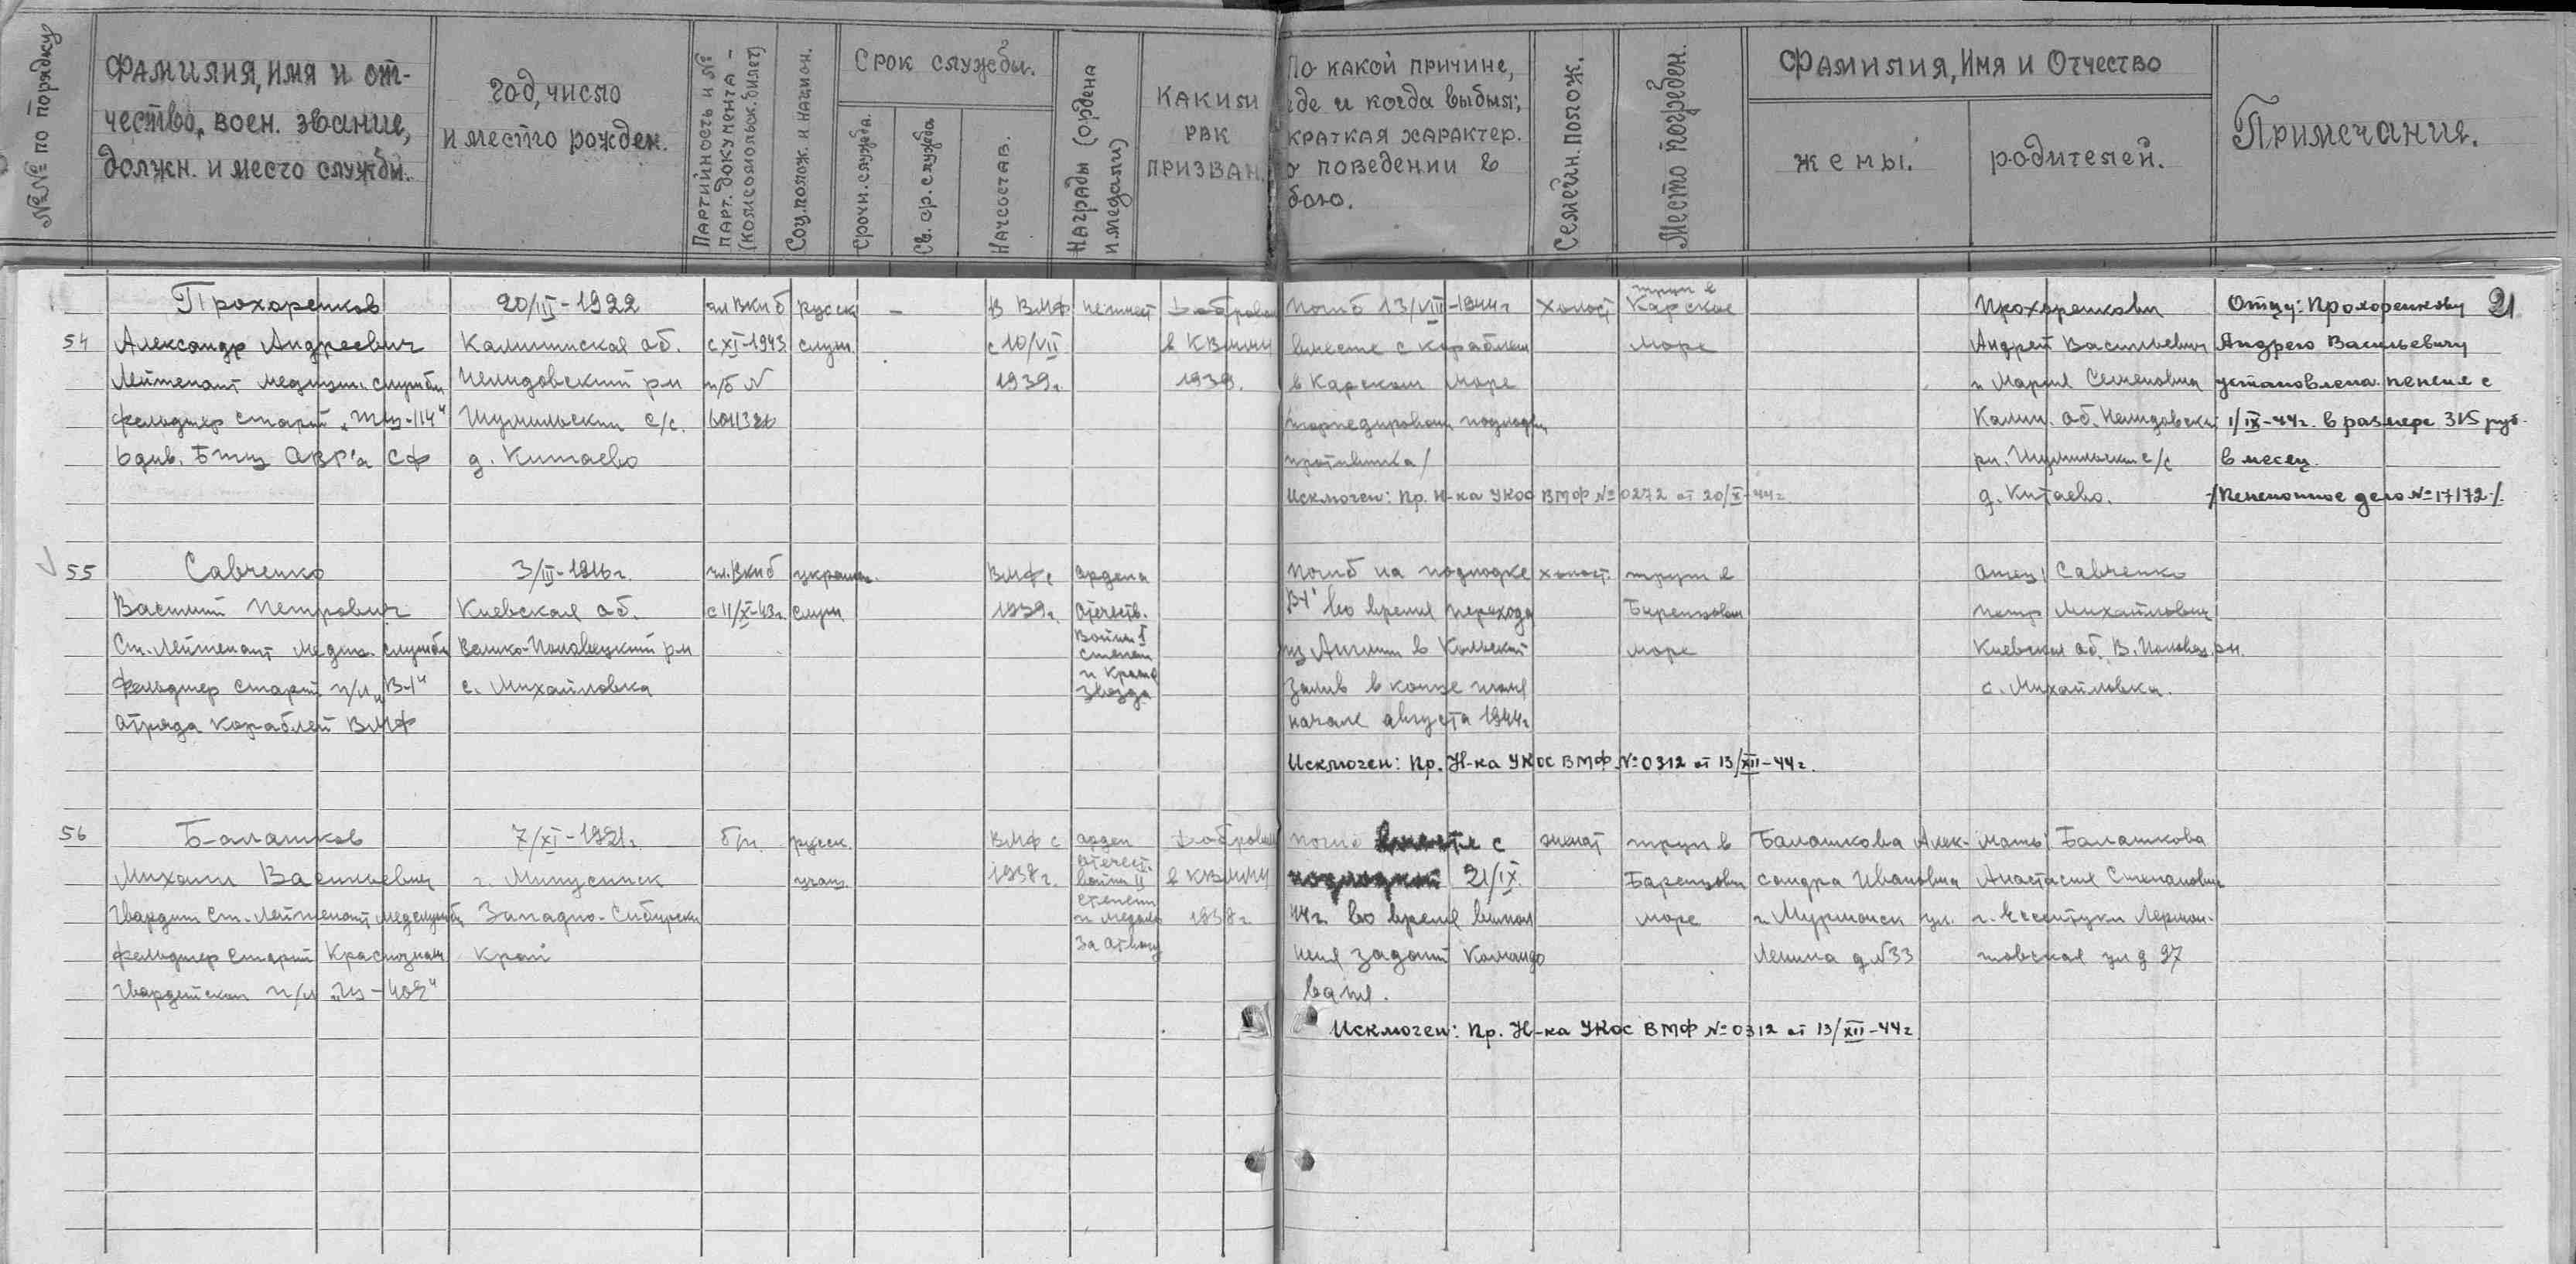 №№ по порядку
Фамилия, имя и от-
чество, воен. звание,
должн. и место службы.
Год, число
и место рожден.
Партийность и №
парт. документа –
(комсомольск. билет)
Соц. полож. и национ.
Срок службы.
Срочн. служба.
Св. ср. служба
Начсостав.
Награды (ордена
и медали)
Каким
РВК
призван.
По какой причине,
где и когда выбыл;
краткая характер.
о поведении в
бою.
Семейн. полож.
Место погребен.
Фамилия, Имя и Отчество
жены.
родителей.
Примечание.
21
54
Прохоренков
Александр Андреевич
Лейтенант медицин. службы
фельдшер старш. „ТЩ-114"
6 див. БТЩ ОВР'а СФ
20/III-1922
Калининская об.
Нелидовский р-н
Шумильский с/с.
д. Китаево
чл ВКПб
с XI-1943
п/б №
русск
служ
–
В ВМФ
с 10/VII
1939г.
не имеет
Добровол
в КВММУ
1939.
Погиб 13/VIII-1944г
вместе с кораблем
в Карском море
торпедирован подлодкой
противника/
Исключен: Пр. Н-ка УКОС ВМФ №0272 от 20/X-44г
Холост
труп в
Карское
море
Прохоренковы
Андрей Васильевич
и Мария Семеновна
Калин. об. Нелидовский
рн. Шумильский с/с
д. Китаево.
Отцу: Прохоренкову
Андрею Васильевичу
установлена пенсия с
1/IX-44г. в размере 315 руб.
в месец.
/Пенсионное дело №17172/.
55
Савченко
Василий Петрович
Ст. Лейтенант медиц. службы
фельдшер старш п/л „В-1"
отряда кораблей ВМФ
3/III-1916г.
Киевская об.
Велико-Половецкий р-н
с. Михайловка
чл. ВКПб
с 11/X-43г.
украин.
служ
ВМФ с
1939г.
ордена
отечеств.
войны I
степени
и Красн
звезда
Погиб на подлодке
В1' во время перехода
из Англии в Кольский
залив в конце июля
начале августа 1944г
Исключен: Пр. Н-ка УКОС ВМФ №0312 от 13/XII-44г.
холост.
труп в
Баренцовом
море
отец Савченко
Петр Михайлович
Киевская об. В. Половец. рн.
с. Михайловка.
56
Балашков
Михаил Васильевич
Гвардии Ст. Лейтенант медслужбы
фельдшер старш Краснознам
Гвардейской п/л „Щ-402"
7/XI-1921г.
г. Минусинск
Западно-Сибирский
край
б/п.
русск.
учащ.
ВМФ с
1938г.
орден
отечест.
войны II
степени
и медаль
за отвагу
Добровол
в КВММУ
1938г
погиб вместе с
подлодкой 21/IX.
44г. во время выпол
нения заданий командо
вания.
Исключен: Пр. Н-ка УКОС ВМФ №0312 от 13/XII-44г
женат
труп в
Баренцовом
море
Балашкова Алек-
сандра Ивановна
г Мурманск ул.
Ленина д №33
мать Балашкова
Анастасия Степановна
г. Ессентуки Лермон-
товская ул д 97